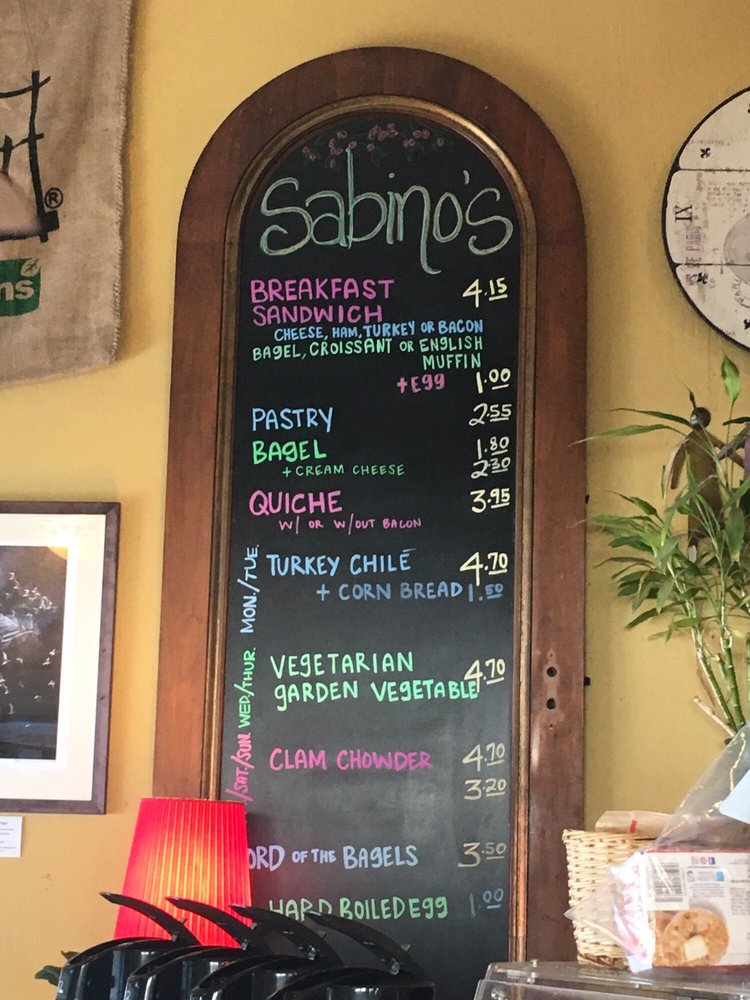 Sabino's
BREAKFAST 4.15
SANDWICH
CHEESE, HAM, TURKEY OR BACON
BAGEL, CROISSANT OR ENGLISH
MUFFIN
+EGG 1.00
PASTRY 2.55
BAGEL 1.80
+ CREAM CHEESE 2.30
QUICHE 3.95
W/ OR W/OUT BACON
MON./TUE.
TURKEY CHILÉ 4.70
+ CORN BREAD 1.50
WED/THUR.
VEGETARIAN 4.70
GARDEN VEGETABLE
/SAT/SUN.
CLAM CHOWDER 4.70
3.20
ORD OF THE BAGELS 3.50
HARD BOILED EGG 1.00
®
ns
IX